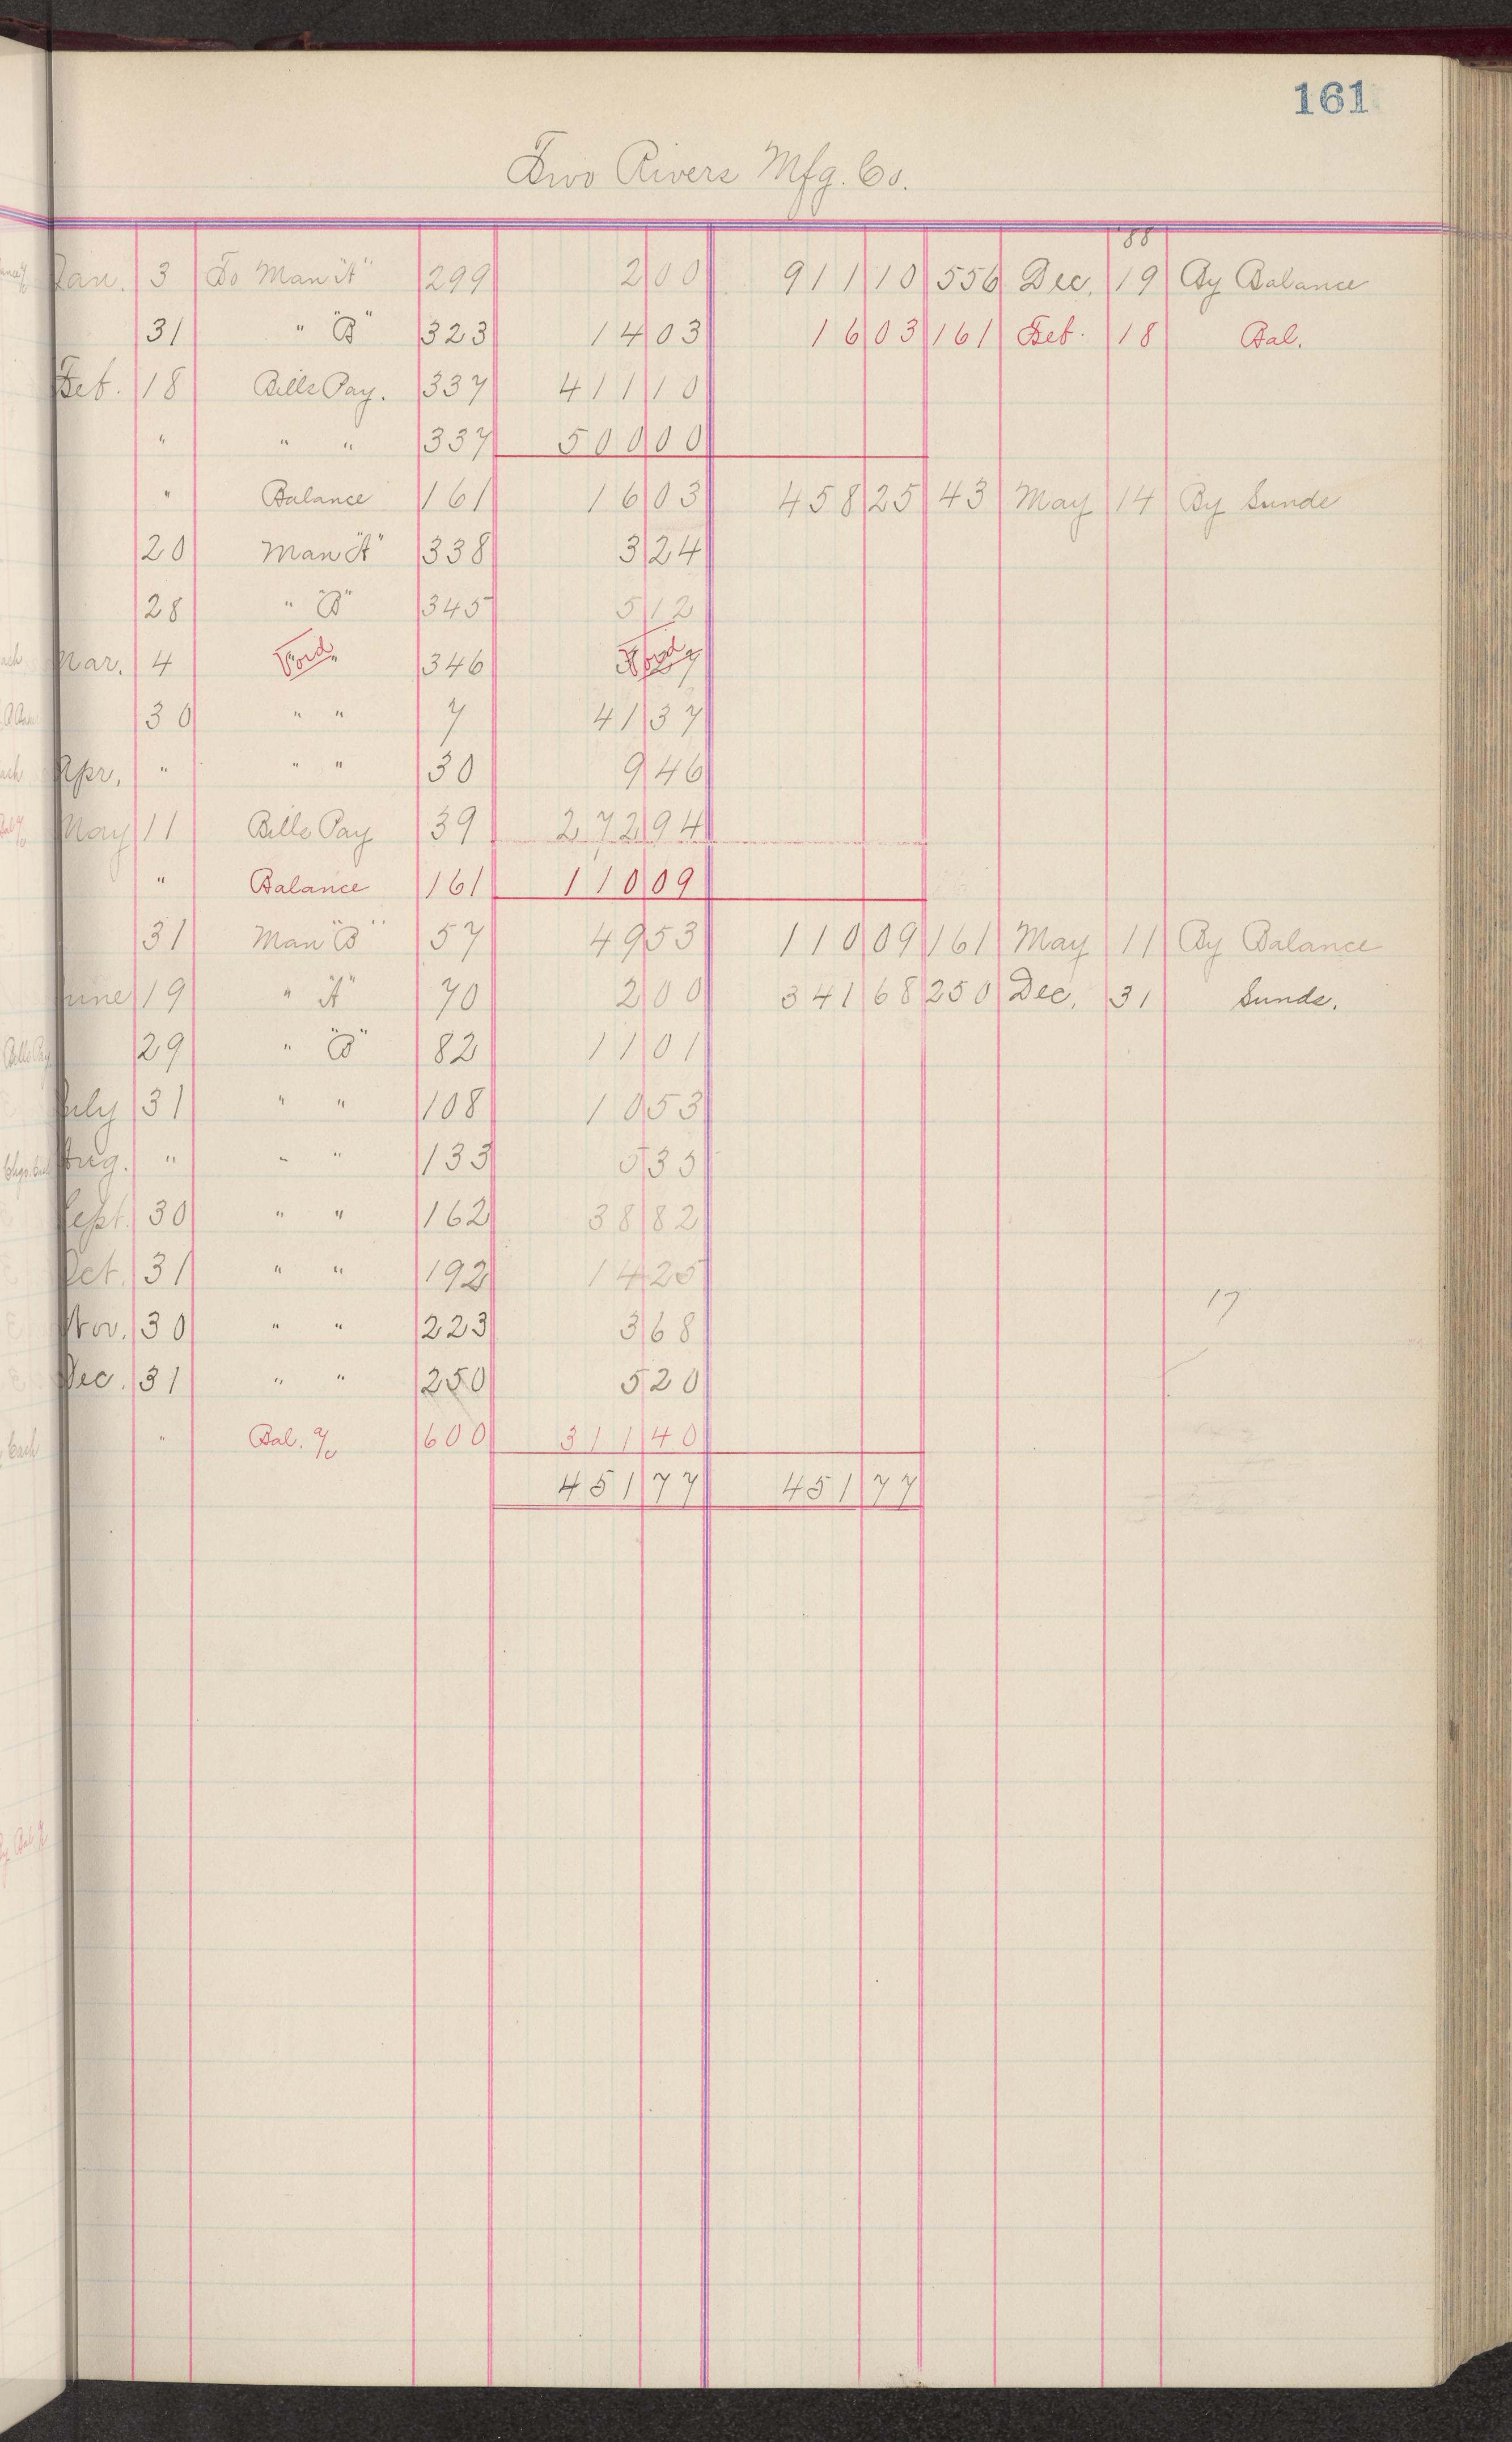 161
Two Rivers Mfg. Co.
'88
Jan. 3 To Man "A" 299 2 00 911 10 556 Dec. 19 By Balance
31 " "B" 323 14 03 16 03 161 Feb. 18 Bal.
Feb. 18 Bills Pay. 337 411 10
" " " 337 500 00
" Balance 161 16 03 458 25 43 May 14 By Sunds
20 Man "A" 338 3 24
28 " "B" 345 5 12
Mar. 4 Void " 346 Void
30 " " 7 41 37
Apr. " " " 30 9 46
May 11 Bills Pay 39 272 94
" Balance 161 110 09
31 Man "B" 57 49 53 110 09 161 May 11 By Balance
June 19 " "A" 70 2 00 341 68 250 Dec. 31 Sunds.
29 " "B" 82 11 01
July 31 " " 108 10 53
Aug. " " " 133 5 35
Sept. 30 " " 162 38 82
Oct. 31 " " 192 14 25
17
Nov. 30 " " 223 3 68
Dec. 31 " " 250 5 20
" Bal. a/c 600 311 40
451 77 451 77